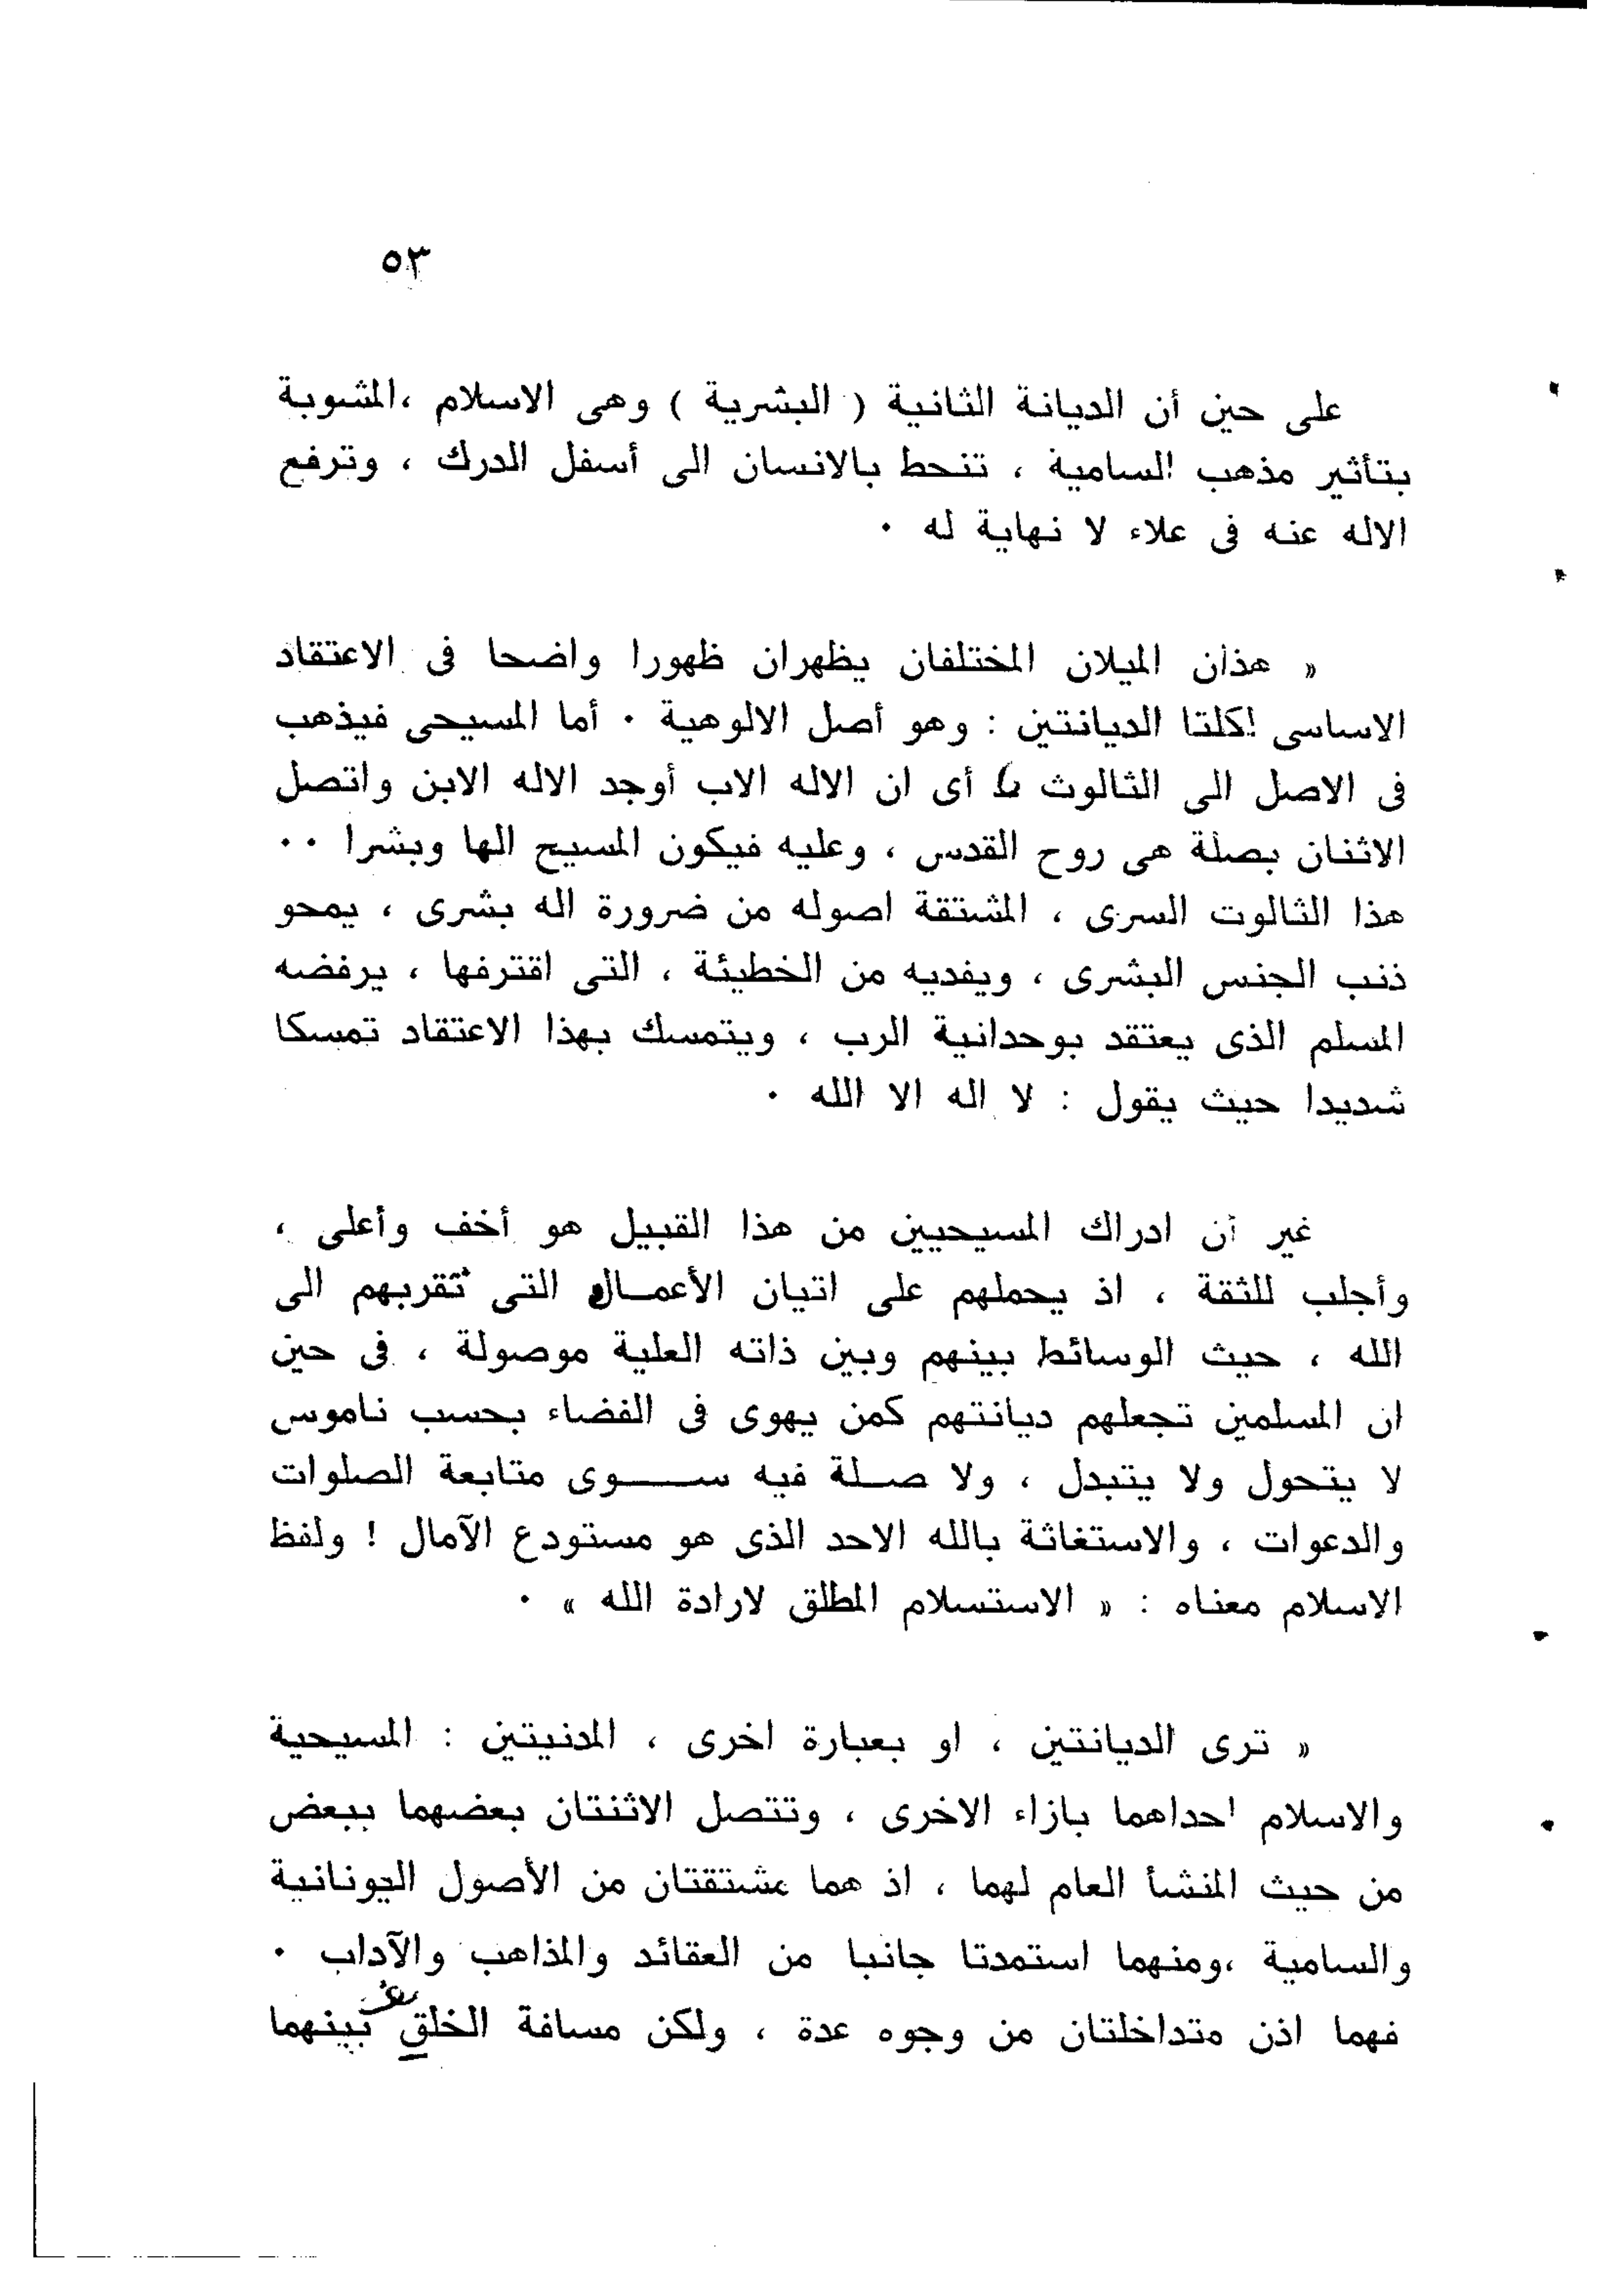 ٥٣
على حين أن الديانة الثانية ( البشرية ) وهى الاسلام ،المشوبة
بتأثير مذهب السامية ، تنحط بالانسان الى أسفل الدرك ، وترفع
الاله عنه فى علاء لا نهاية له ٠
« هذان الميلان المختلفان يظهران ظهورا واضحا فى الاعتقاد
الاساسى لكلتا الديانتين : وهو أصل الالوهية ٠ أما المسيحى فيذهب
فى الاصل الى الثالوث أى ان الاله الاب أوجد الاله الابن واتصل
الاثنان بصلة هى روح القدس ، وعليه فيكون المسيح الها وبشرا ٠٠
هذا الثالوت السرى ، المشتقة اصوله من ضرورة اله بشرى ، يمحو
ذنب الجنس البشرى ، ويفديه من الخطيئة ، التى اقترفها ، يرفضه
المسلم الذى يعتقد بوحدانية الرب ، ويتمسك بهذا الاعتقاد تمسكا
شديدا حيث يقول : لا اله الا الله ٠
غير أن ادراك المسيحيين من هذا القبيل هو أخف وأعلى ،
وأجلب للثقة ، اذ يحملهم على اتيان الأعمـال التى تقربهم الى
الله ، حيث الوسائط بينهم وبين ذاته العلية موصولة ، فى حين
ان المسلمين تجعلهم ديانتهم كمن يهوى فى الفضاء بحسب ناموس
لا يتحول ولا يتبدل ، ولا صـلة فيه ســـوى متابعة الصلوات
والدعوات ، والاستغاثة بالله الاحد الذى هو مستودع الآمال ! ولفظ
الاسلام معناه : « الاستسلام المطلق لارادة الله » ٠
« ترى الديانتين ، او بعبارة اخرى ، المدنيتين : المسيحية
والاسلام احداهما بازاء الاخرى ، وتتصل الاثنتان بعضهما ببعض
من حيث المنشأ العام لهما ، اذ هما مشتقتان من الأصول اليونانية
والسامية ،ومنهما استمدتا جانبا من العقائد والمذاهب والآداب ٠
فهما اذن متداخلتان من وجوه عدة ، ولكن مسافة الخلق بينهما